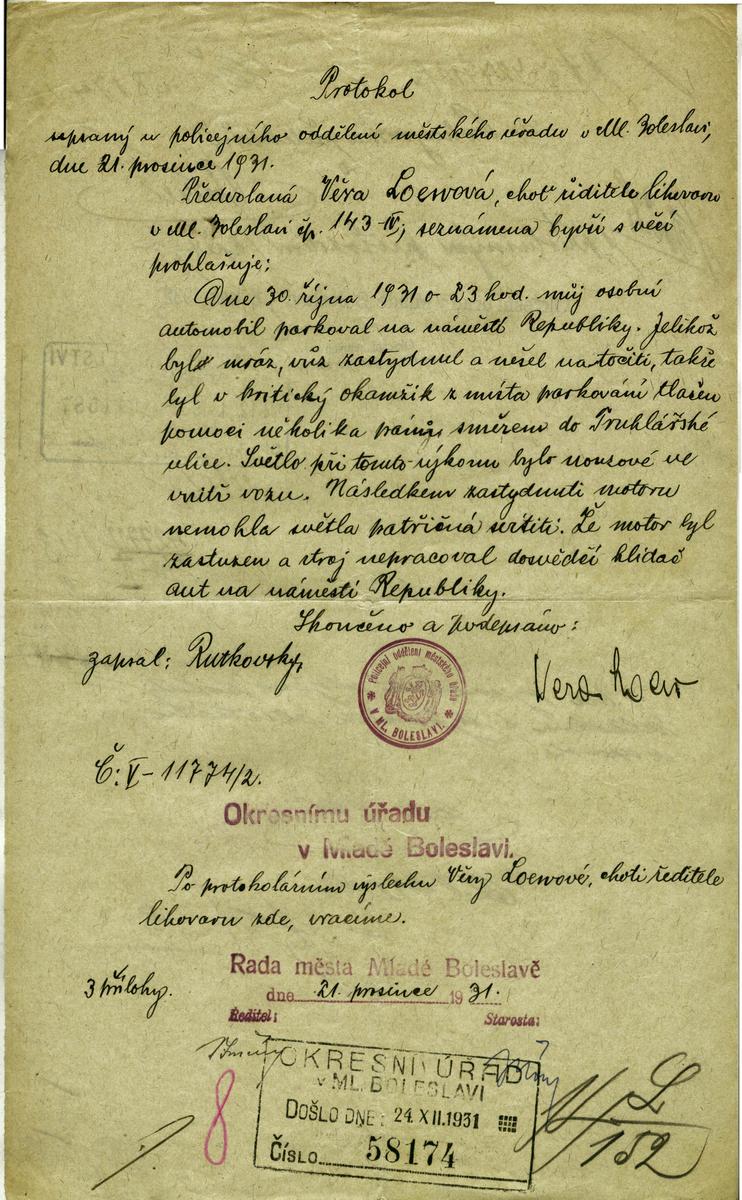 Protokol
sepsaný u policejního oddělení městského úřadu v Ml. Boleslavi,
dne 21. prosince 1931.
Předvolaná Věra Loewová, choť ředitele lihovaru
v Ml. Boleslavi čp. 143-IV; seznámena byvši s věcí
prohlašuje:
Dne 30. října 1931 o 23 hod. můj osobní
automobil parkoval na náměstí Republiky. Jelikož
byl mráz, vůz zastydnul a nešel natočiti, takže
byl v kritický okamžik z místa parkování tlačen
pomocí několika pánů směrem do Truhlářské
ulice. Světlo při tomto výkonu bylo nouzové ve
vnitř vozu. Následkem zastydnutí motoru
nemohla světla patřičná svítiti. Že motor byl
zastuzen a stroj nepracoval dosvědčí hlídač
aut na náměstí Republiky.
Skončeno a podepsáno:
zapsal: Rutkovský,
Vera Loew
Policejní oddělení městského úřadu
V ML. BOLESLAVI.
Č: V-11774/2.
Okresnímu úřadu
v Mladé Boleslavi.
Po protokolárním výslechu Věry Loewové, choti ředitele
lihovaru zde, vracíme.
3 přílohy.
Rada města Mladé Boleslavě
dne 21. prosince 1931.
Ředitel: Starosta:
OKRESNÍ ÚŘAD
v ML. BOLESLAVI
DOŠLO DNE: 24.XII.1931
ČÍSLO 58174
8
152